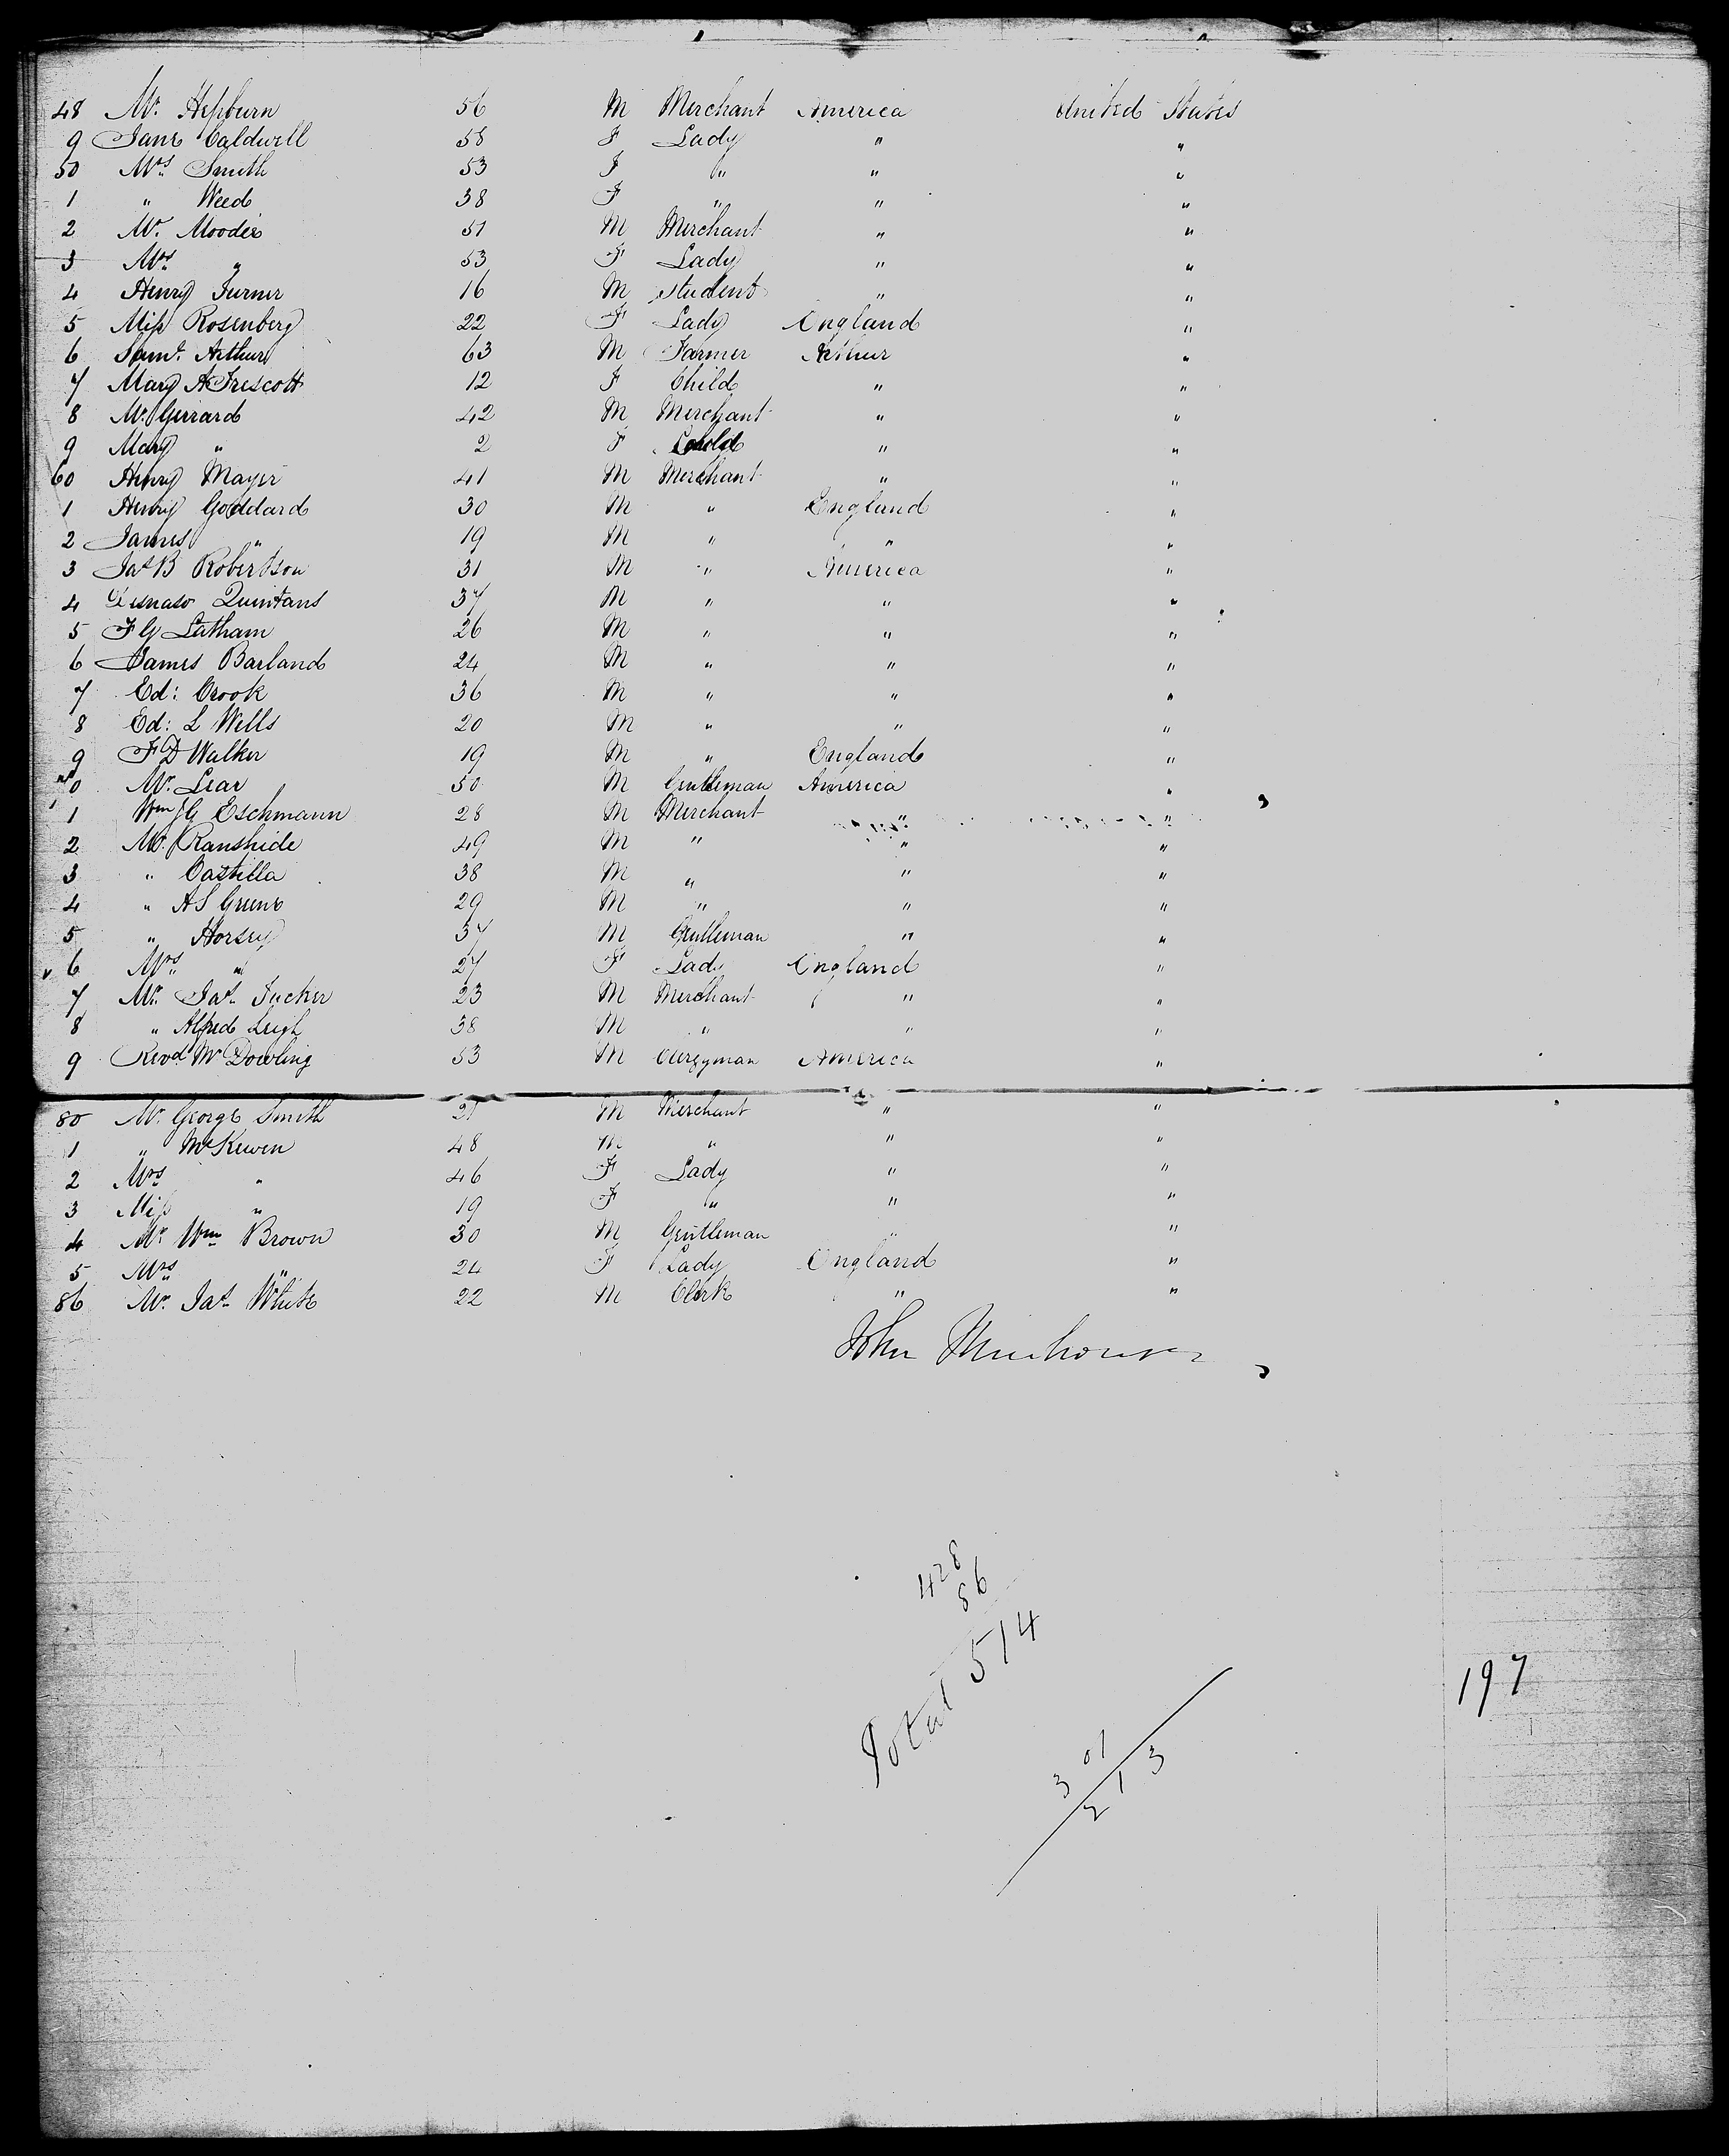 48 Mr. Hepburn 56 M Merchant America United States
9 Jane Caldwell 58 F Lady " "
50 Mrs. Smith 53 F " " "
1 " Weed 38 F " " "
2 Mr. Moodie 51 M Merchant " "
3 Mrs. " 53 F Lady " "
4 Henry Turner 16 M Student " "
5 Miss Rosenberg 22 F Lady England "
6 Saml. Arthur 63 M Farmer Arthur "
7 Mary A Trescott 12 F Child " "
8 Mr. Gerrard 42 M Merchant " "
9 Mary " 2 F " "
60 Henry Mayer 41 M Merchant " "
1 Henry Goddard 30 M " England "
2 James " 19 M " " "
3 Jas B Robertson 31 M " America "
4 Quintans 37 M " " "
5 F G Latham 26 M " " "
6 James Barland 24 M " " "
7 Ed: Crook 36 M " " "
8 Ed: L Wells 20 M " " "
9 F D Walker 19 M " England "
70 Mr. Lear 50 M Gentleman America "
1 Wm G Eschmann 28 M Merchant " "
2 Mr. Ranshide 49 M " " "
3 " Castilla 38 M " " "
4 " A S Greene 29 M " " "
5 " Horsey 37 M Gentleman " "
6 Mrs. " 27 F Lady England "
7 Mr. Jas. Tucker 23 M Merchant " "
8 " Alfred Leigh 38 M " " "
9 Revd. Mr Dowling 53 M Clergyman America "
80 Mr. George Smith 21 M Merchant " "
1 " McKewen 48 M " " "
2 Mrs " 46 F Lady " "
3 Miss " 19 F " " "
4 Mr Wm Brown 30 M Gentleman " "
5 Mrs " 24 F Lady England "
86 Mr. Jas. White 22 M Clerk " "
John
428
86
Total 514
301
213
197